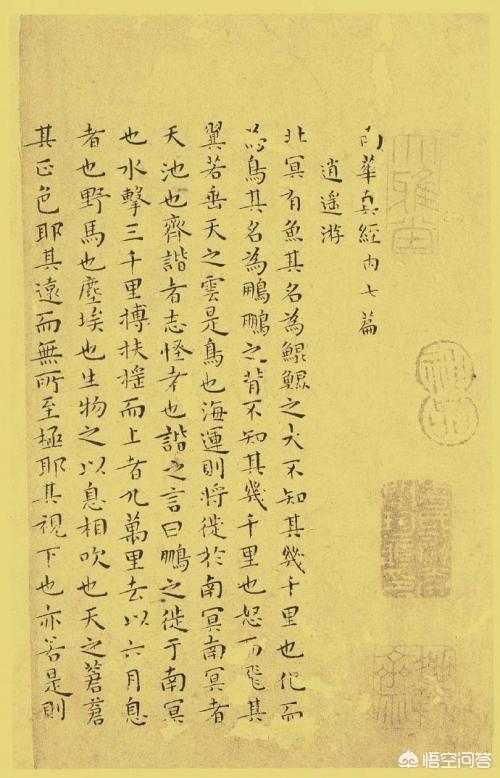 南華真經內七篇
逍遙游
北冥有魚其名為鯤鯤之大不知其幾千里也化而
為鳥其名為鵬鵬之背不知其幾千里也怒而飛其
翼若垂天之雲是鳥也海運則將徙於南冥南冥者
天池也齊諧者志怪者也諧之言曰鵬之徙于南冥
也水擊三千里摶扶搖而上者九萬里去以六月息
者也野馬也塵埃也生物之以息相吹也天之蒼蒼
其正色耶其遠而無所至極耶其視下也亦若是則
神品
悟空问答